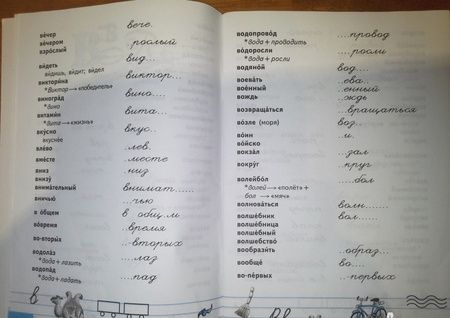 ве́чер вече.
ве́чером
взро́слый .рослый
ви́деть вид...
ви́дишь, ви́дит; ви́дел
виктори́на виктор...
*Виктор → «победитель»
виногра́д вино....
*вино
витами́н вита...
*вита → «жизнь»
вку́сно вкус..
вкуснее
вле́во .лев.
вме́сте .месте
вниз .низ
внима́тельный внимат.....
вничью́ ...чью
в о́бщем в общ.м
во́время ..время
во-вторы́х ..-вторых
водола́з ....лаз
*вода + лазить
водопа́д ....пад
*вода + падать
в
водопрово́д ....провод
*вода + проводить
во́доросли ....росли
*вода + росли
водяно́й вод....
воева́ть .ева..
вое́нный ..енный
вождь ..ждь
возвраща́ться ...вращаться
во́зле (моря) воз..
во́ин ..и.
во́йско
вокза́л ...зал
вокру́г ..круг
волейбо́л ....бол
*волей → «полёт» +
бол → «мяч»
волнова́ться волн.......
волше́бник вол.....
волше́бница
волше́бный
волшебство́
вообрази́ть ..образ...
вообще́ во....
во-пе́рвых ..-первых